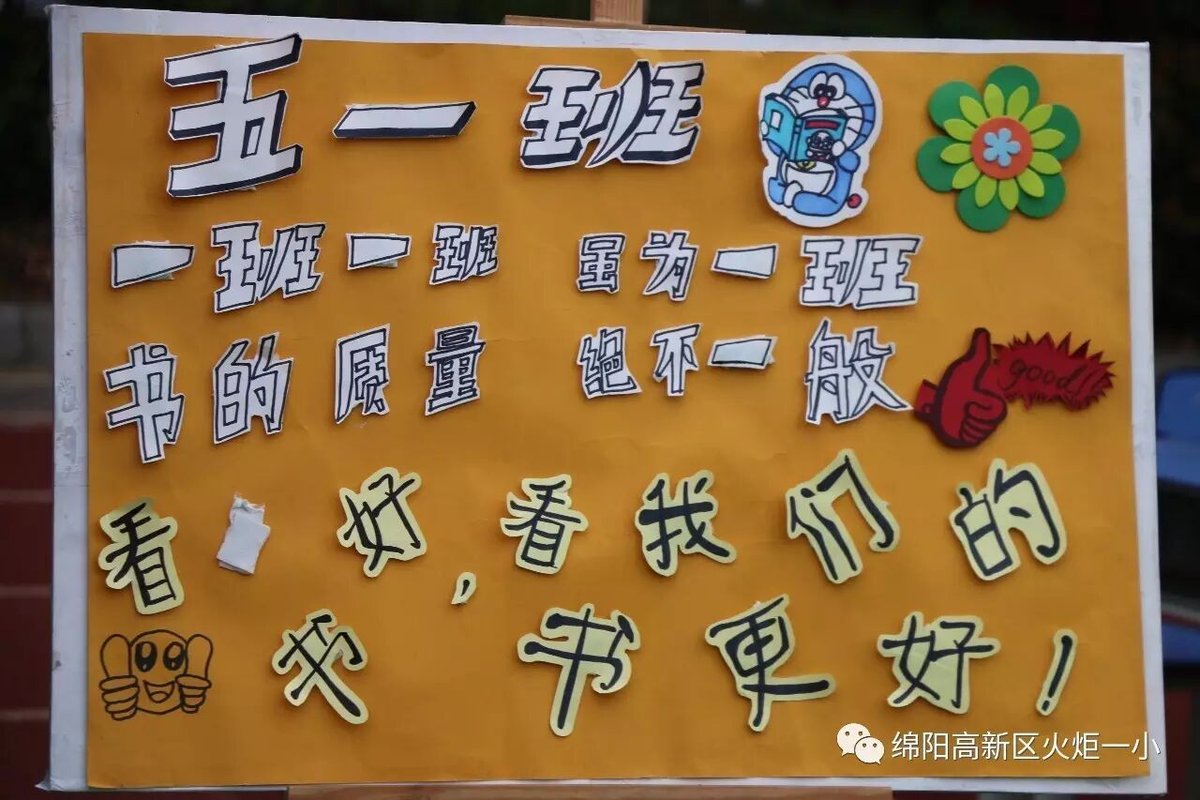 五一班
一班一班 虽为一班
书的质量 绝不一般
good!!
看 好，看我们的
书 书更好！
绵阳高新区火炬一小